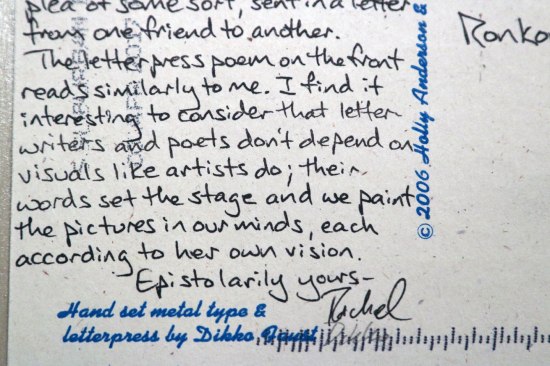 plea of some sort, sent in a letter
from one friend to another.
The letterpress poem on the front
reads similarly to me. I find it
interesting to consider that letter
writers and poets don't depend on
visuals like artists do; their
words set the stage and we paint
the pictures in our minds, each
according to her own vision.
Epistolarily yours-
Rachel
Hand set metal type &
letterpress by Dikko
Ronko
© 2006 Holly Anderson &